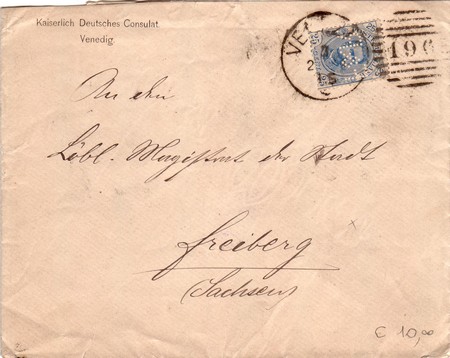 Kaiserlich Deutsches Consulat.
Venedig.
An den
Löbl. Magistrat der Stadt
Freiberg
(Sachsen)
€ 10,00